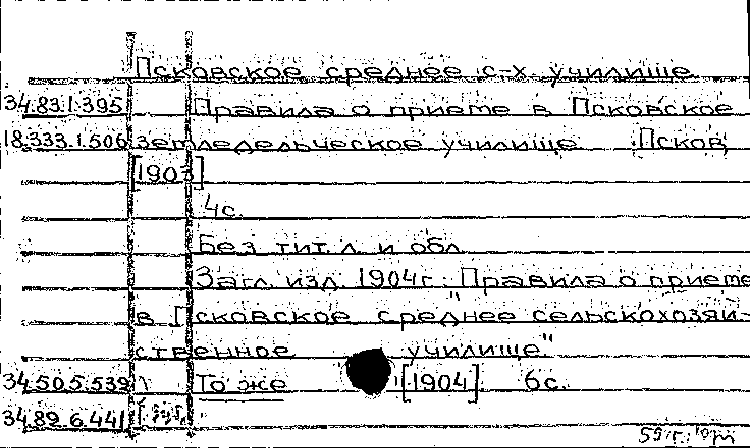 Псковское среднее с-х училище
34.83.1.395 Правила о приеме в Псковское
18.333.1.506 земледельческое училище Псков,
[1903]
4с.
Без тит. л. и обл.
Загл. изд. 1904г.: Правила о приеме
в "Псковское среднее сельскохозяй-
ственное училище"
34.50.5.539 То же [1904]. 6с.
34.89.6.441